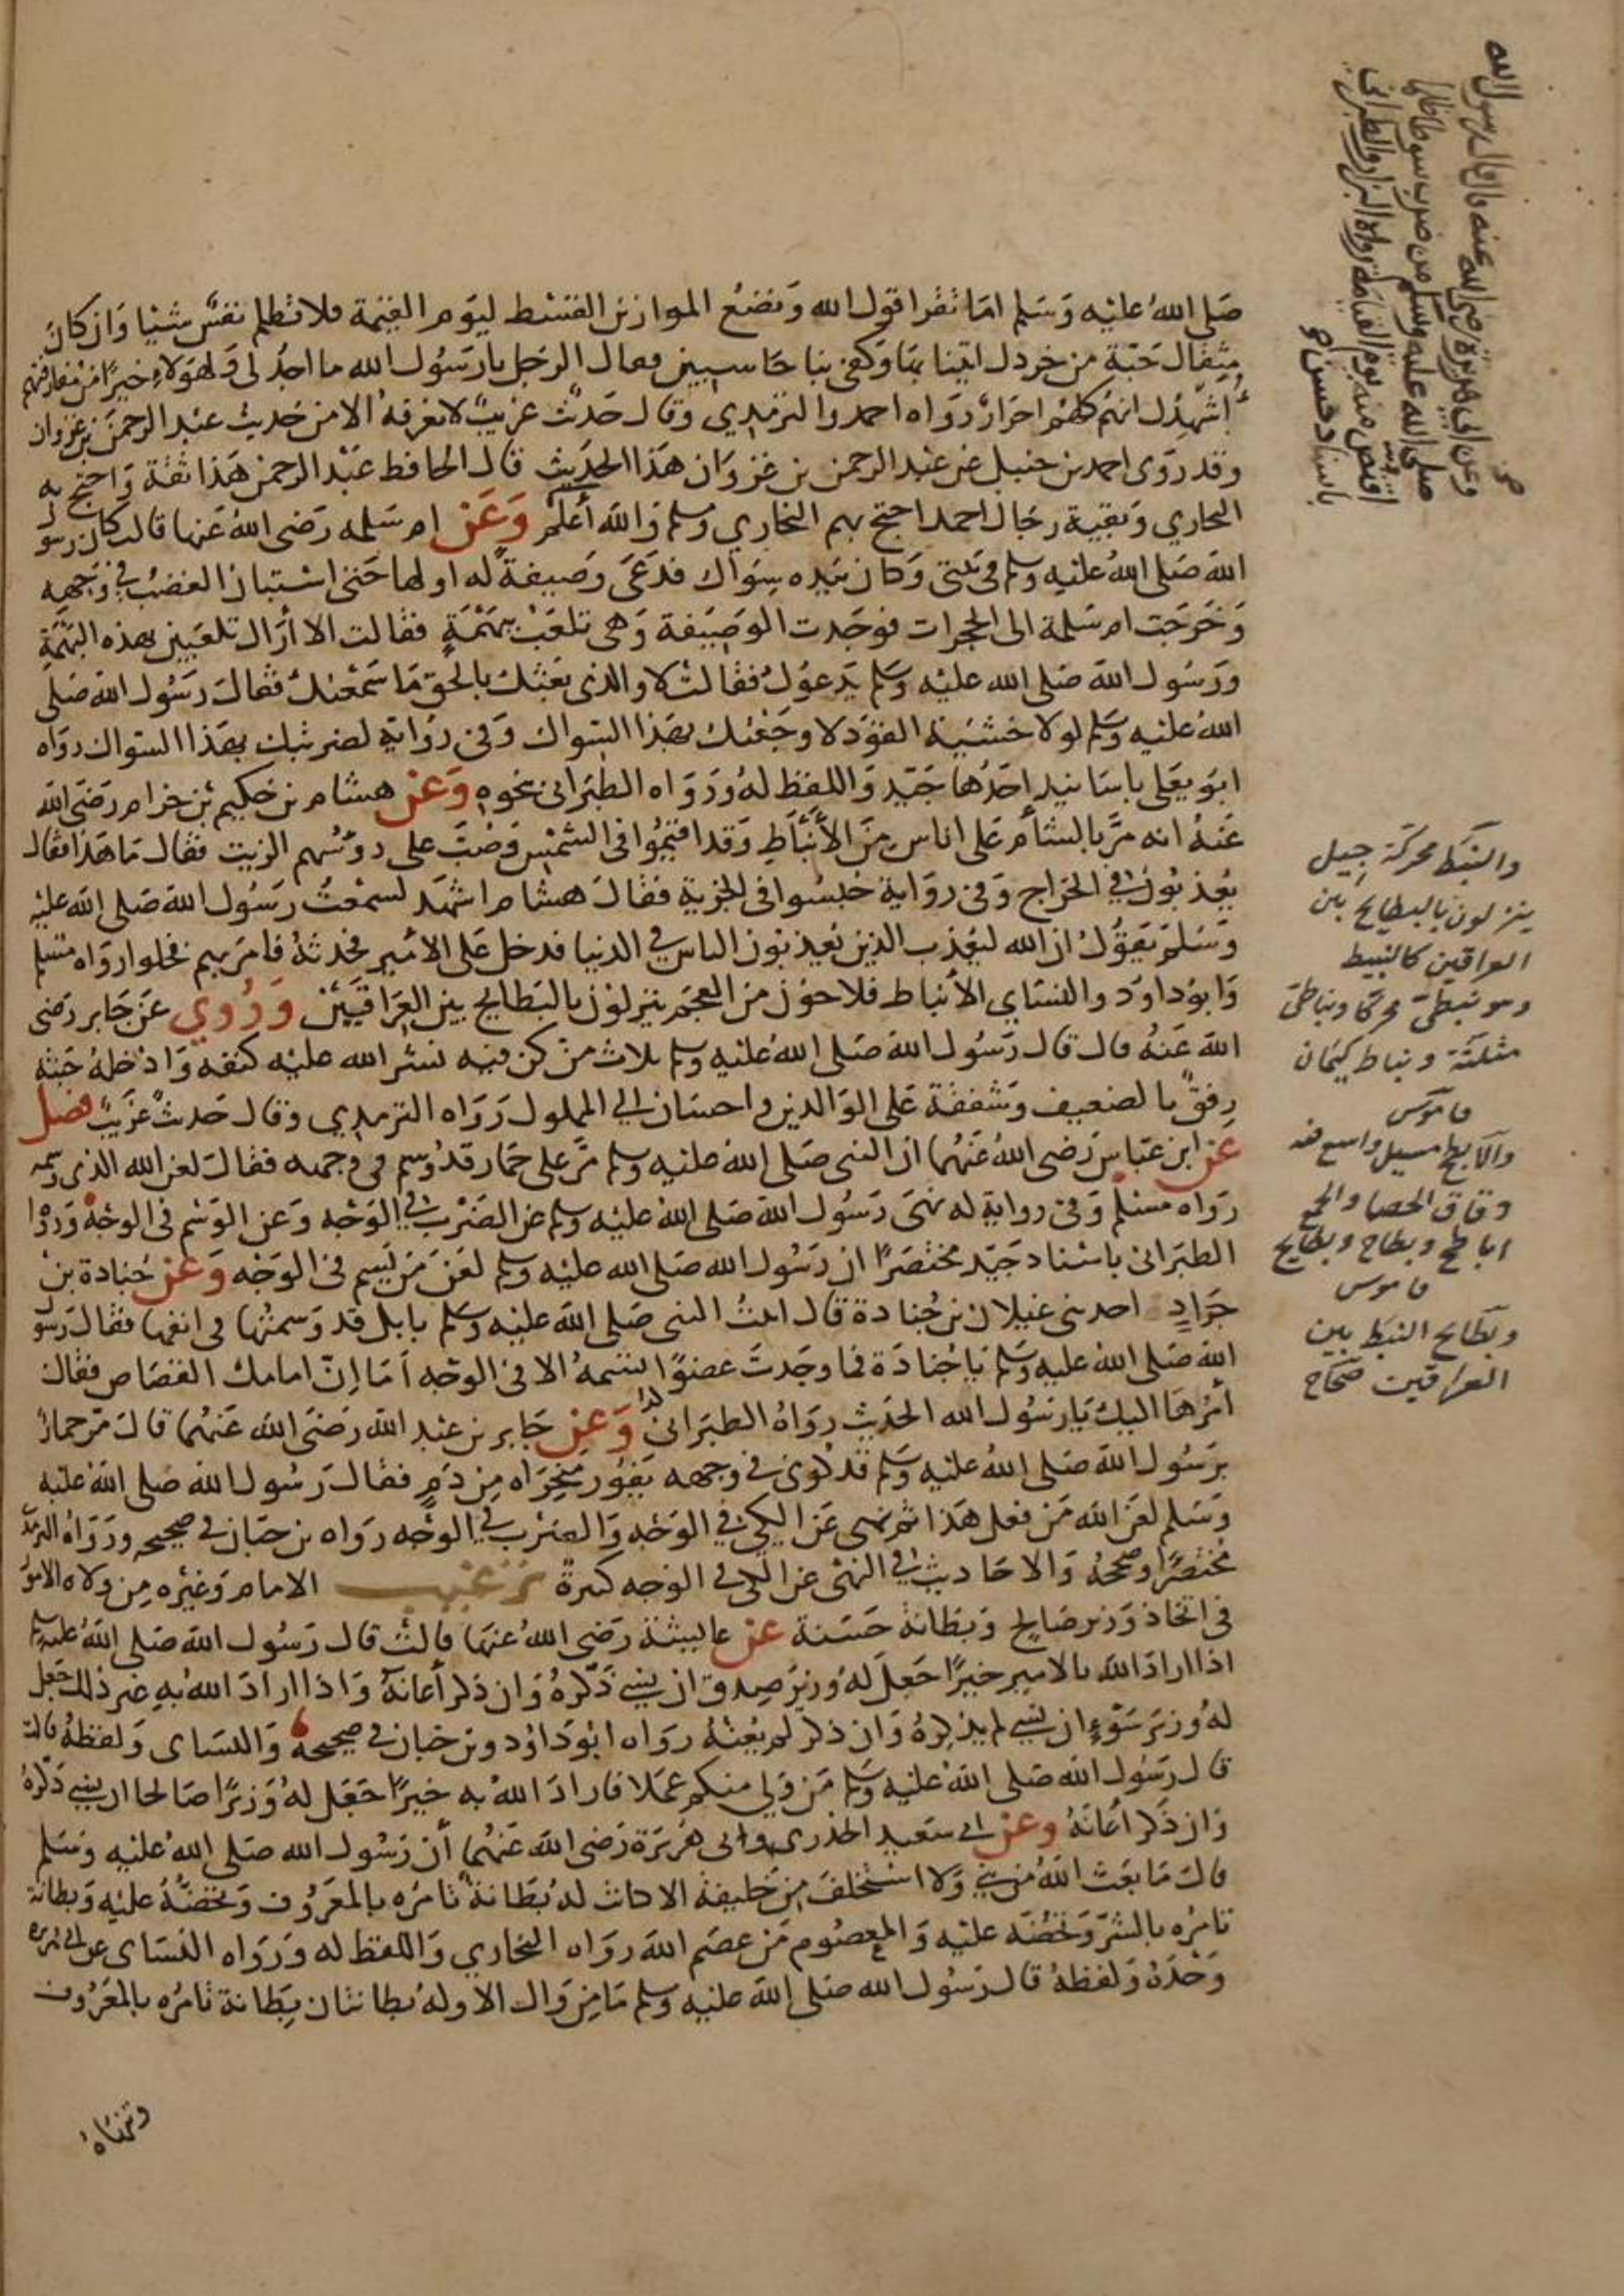 صلى الله عليه وسلم اما تقرا قول الله ونضع الموازين القسط ليوم القيمة فلا تظلم نفس شيئا وان كان
مثقال حبة من خردل اتينا بها وكفى بنا حاسبين فقال الرجل يا رسول الله ما اجد لى ولهؤلاء خيرا من مفارقتهم
اشهدك انهم كلهم احرار رواه احمد والترمذي وقال حديث غريب لا نعرفه الا من حديث عبد الرحمن بن غزوان
وقد روى احمد بن حنبل عن عبد الرحمن بن غزوان هذا الحديث قال الحافظ عبد الرحمن هذا ثقة واحتج به
البخاري وبقية رجال احمد احتج بهم البخاري ومسلم والله أعلم وعن ام سلمه رضى الله عنها قالت كان رسول
الله صلى الله عليه وسلم في بيتى وكان بيده سواك فدعى وصيفة له او لها حتى استبان الغضب في وجهه
وخرجت ام سلمة الى الحجرات فوجدت الوصيفة وهى تلعب ببهمة فقالت الا أراك تلعبين بهذه البهمة
ورسول الله صلى الله عليه وسلم يدعوك فقالت لا والذى بعثك بالحق ما سمعتك فقال رسول الله صلى
الله عليه وسلم لولا خشية القود لاوجعتك بهذا السواك وفى رواية لضربتك بهذا السواك رواه
ابو يعلى باسانيد احدها جيد واللفظ له ورواه الطبرانى بنحوه وعن هشام بن حكيم بن حزام رضى الله
عنه انه مر بالشأم على اناس من الأنباط وقد اقيموا فى الشمس وصب على رؤسهم الزيت فقال ما هذا فقال
يعذبون في الخراج وفى رواية حبسوا فى الجزية فقال هشام اشهد لسمعت رسول الله صلى الله عليه
وسلم يقول ان الله ليعذب الذين يعذبون الناس في الدنيا فدخل على الامير فحدثه فامر بهم فخلوا رواه مسلم
وابو داود والنساي الأنباط فلاحون من العجم ينزلون بالبطايح بين العراقيين وروي عن جابر رضى
الله عنه قال قال رسول الله صلى الله عليه وسلم ثلاث من كن فيه نشر الله عليه كنفه وادخله جنته
رفق بالضعيف وشفقة على الوالدين واحسان الي المملوك رواه الترمذي وقال حديث غريب فصل
عن ابن عباس رضى الله عنهما ان النبى صلى الله عليه وسلم مر على حمار قد وسم فى وجهه فقال لعن الله الذى وسمه
رواه مسلم وفى رواية له نهى رسول الله صلى الله عليه وسلم عن الضرب في الوجه وعن الوسم فى الوجه ورواه
الطبرانى باسناد جيد مختصرا ان رسول الله صلى الله عليه وسلم لعن من يسم فى الوجه وعن جنادة بن
جراد احد بنى غيلان بن جنادة قال اتيت النبى صلى الله عليه وسلم بابل قد وسمتها في انفها فقال رسول
الله صلى الله عليه وسلم يا جنادة فما وجدت عضوا تسمه الا فى الوجه أما إن امامك القصاص فقال
أمرها اليك يا رسول الله الحديث رواه الطبرانى وعن جابر بن عبد الله رضى الله عنهما قال مر حمار
برسول الله صلى الله عليه وسلم قد كوى في وجهه يفور منخراه من دم فقال رسول الله صلى الله عليه
وسلم لعن الله من فعل هذا ثم نهى عن الكي في الوجه والضرب في الوجه رواه بن حبان في صحيحه ورواه الترمذي
مختصرا وصححه والاحاديث في النهى عن الكى فى الوجه كثيرة ترغيب الامام وغيره من ولاة الامور
فى اتخاذ وزير صالح وبطانة حسنة عن عايشة رضى الله عنها قالت قال رسول الله صلى الله عليه وسلم
اذا اراد الله بالامير خيرا جعل له وزير صدق ان نسي ذكره وان ذكر أعانه واذا اراد الله به غير ذلك جعل
له وزير سوء ان نسي لم يذكره وان ذكر لم يعنه رواه ابو داود وبن حبان في صحيحه والنساى ولفظه قالت
قال رسول الله صلى الله عليه وسلم من ولي منكم عملا فاراد الله به خيرا جعل له وزيرا صالحا ان نسي ذكره
وان ذكر أعانه وعن ابي سعيد الخدرى وابى هريرة رضى الله عنهما أن رسول الله صلى الله عليه وسلم
قال ما بعث الله من نبي ولا استخلف من خليفة الا كانت له بطانة تامره بالمعروف وتحضه عليه وبطانة
تامره بالشر وتحضه عليه والمعصوم من عصم الله رواه البخاري واللفظ له ورواه النساى عن ابي هريرة
وحده ولفظه قال رسول الله صلى الله عليه وسلم ما من وال الا وله بطانتان بطانة تامره بالمعروف
وتنهاه
وعن ابي هريرة رضى الله عنه قال قال رسول الله
صلى الله عليه وسلم من ضرب سوطا ظلما
اقتص منه يوم القيامة رواه البزار والطبرانى
باسناد حسن
والنبط محركة جيل
ينزلون بالبطايح بين
العراقين كالنبيط
وهو نبطى محركا ونباطى
مثلثة ونباط كيمان
قاموس
والابطح مسيل واسع فيه
دقاق الحصا والجمع
اباطح وبطاح وبطايح
قاموس
وبطايح النبط بين
العراقين صحاح